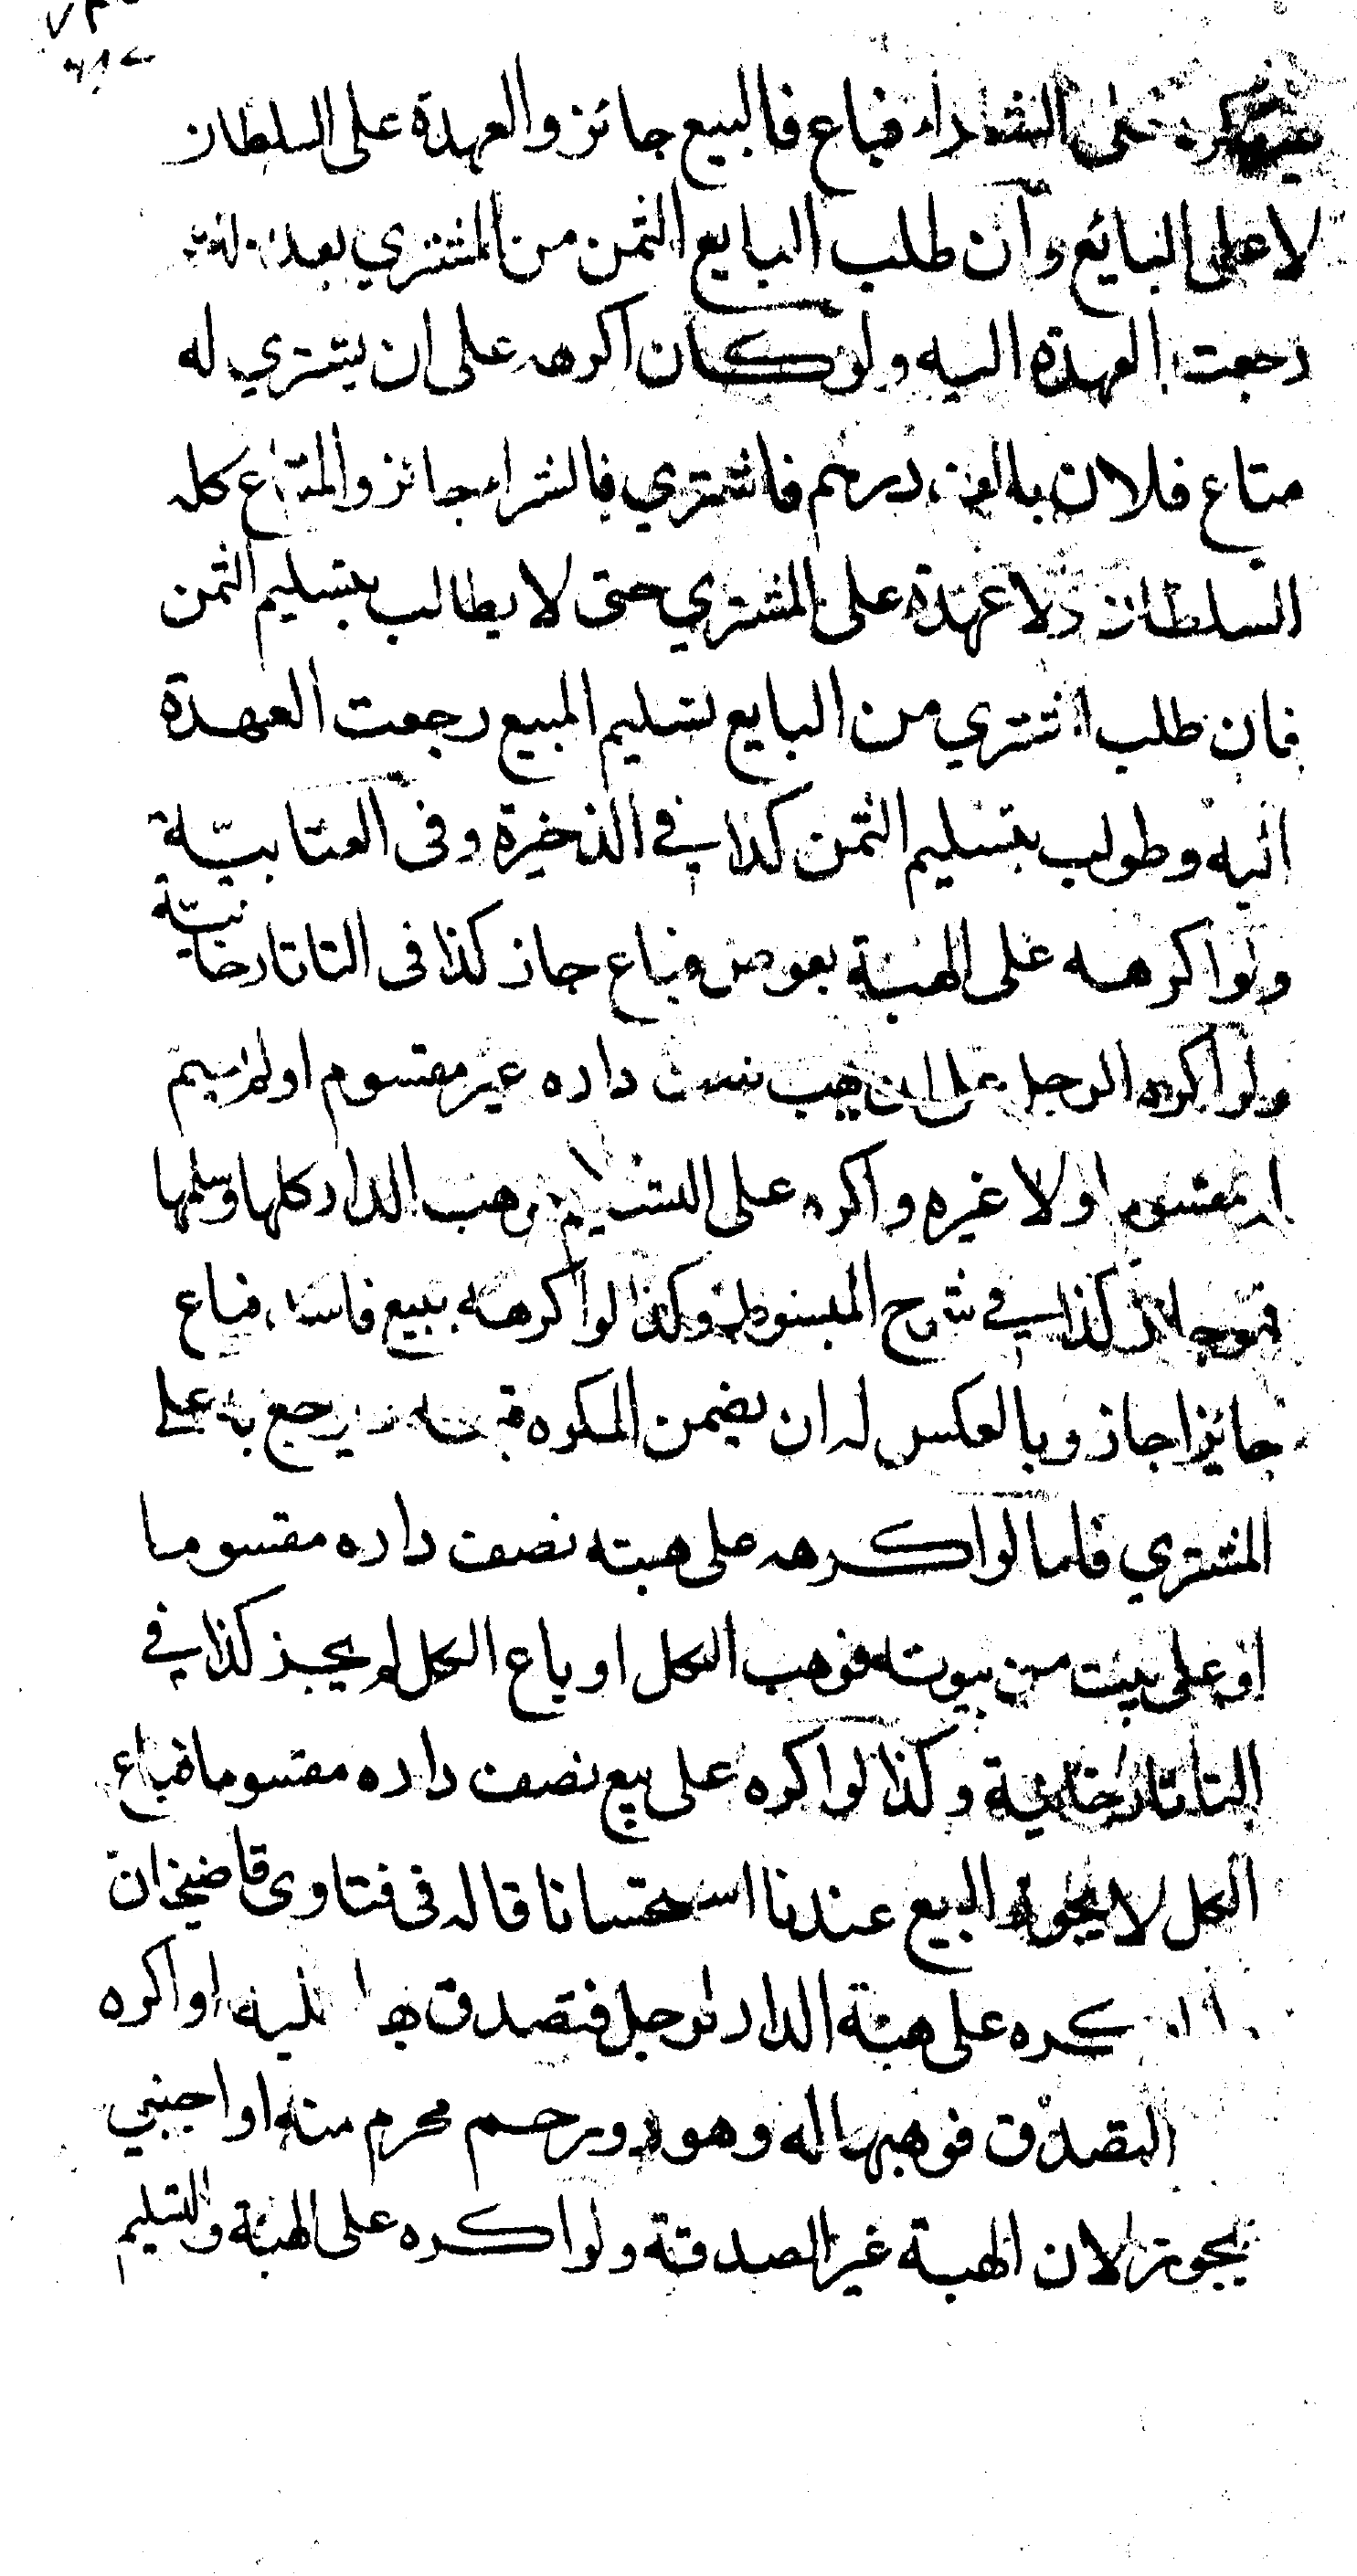 يكره على الشراء فباع فالبيع جائز والعهدة على السلطان
لا على البائع وان طلب البايع الثمن من المشتري بعد
رجعت العهدة اليه ولو كان اكرهه على ان يشتري له
متاع فلان بالف درهم فاشتري فالشراء جائز والمتاع كله
السلطان ولا عهدة على المشتري حتى لا يطالب بتسليم الثمن
فان طلب المشتري من البايع تسليم المبيع رجعت العهدة
اليه وطولب بتسليم الثمن كذا في الذخيرة وفى العتابيّة
ولو اكرهه على الهبة بعوض فباع جاز كذا فى التاتارخانيّة
ولو اكره الرجل على ان يهب نصف داره غير مقسوم او لم يسم
له مقسوم او لا غيره واكره على التسليم فوهب الدار كلها وسلمها
فهو جائز كذا في شرح المبسوط وكذا لو اكرهه ببيع فاسد فباع
جائزا جاز وبالعكس له ان يضمن المكره قيمته ويرجع به على
المشتري فلما لو اكرهه على هبته نصف داره مقسوما
او على بيت من بيوته فوهب الكل او باع الكل لم يجز كذا في
التاتارخانية وكذا لو اكره على بيع نصف داره مقسوما فباع
الكل لا يجوز البيع عندنا استحسانا قاله فى فتاوى قاضيخان
اكره على هبة الدار لرجل فتصدق بها عليه او اكره
التصدق فوهبها له وهو ذو رحم محرم منه او اجنبي
يجوز لان الهبة غير الصدقة ولو اكره على الهبة والتسليم